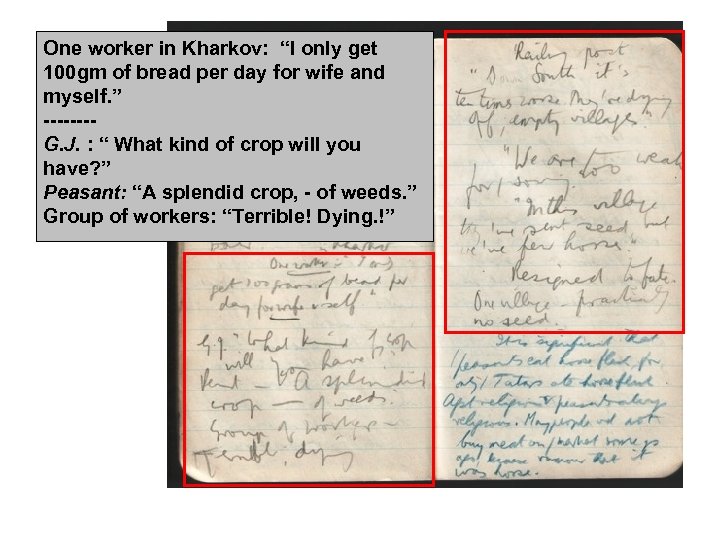 One worker in Kharkov: “I only get
100gm of bread per day for wife and
myself.”
--------
G.J. : “ What kind of crop will you
have?”
Peasant: “A splendid crop, - of weeds.”
Group of workers: “Terrible! Dying.!”
Kharkov
One worker - I only
get 100 grams of bread per
day for wife & self"
G.J. "What kind of crop
will you have?
Peasant - A splendid
crop - of weeds.
Group of workers -
Terrible, dying
Railway post
"Down South it's
ten times worse. They're dying
off, empty villages"
"We are too weak
for sowing
"In this village
they've sent seed, but
we've few horse."
Resigned to fate.
One village - practically
no seed.
It is significant that
peasants eat horse flesh for
only Tatars ate horseflesh
Agst religion & peasants always
religious. Many people wd not
buy meat on market some yrs
ago, because rumour that it
was horse.